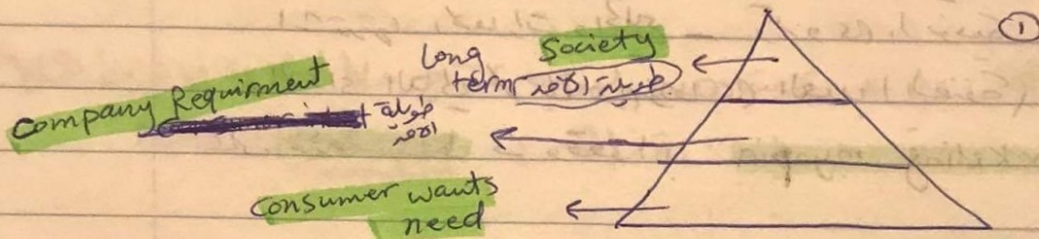 ①
Society
Long term طويلة الأمد
Company Requirment
طويلة الأمد
Consumer wants
need